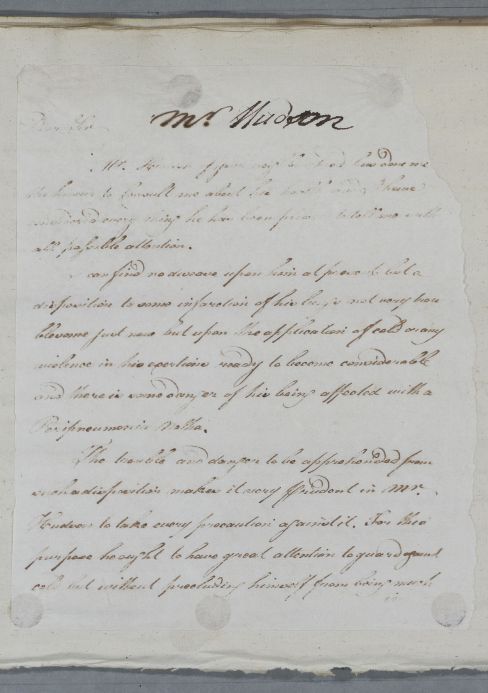 Mr. Hudson
Dear Sir
Mr. Hudson of your has done me
the honour to Consult me about his health and I have
considered every thing he has been pleased to tell me with
all possible attention.
I can find no disease upon him at present but a
disposition to some infarction of his lungs not very trou
blesome just now but upon the application of cold or any
violence in his exertions ready to become considerable
and there is some danger of his being affected with a
Peripneumonia Notha.
The trouble and danger to be apprehended from
such a disposition makes it very prudent in Mr.
Hudson to take every precaution against it. For this
purpose he ought to have great attention to guard against
cold but without precluding himself from being much